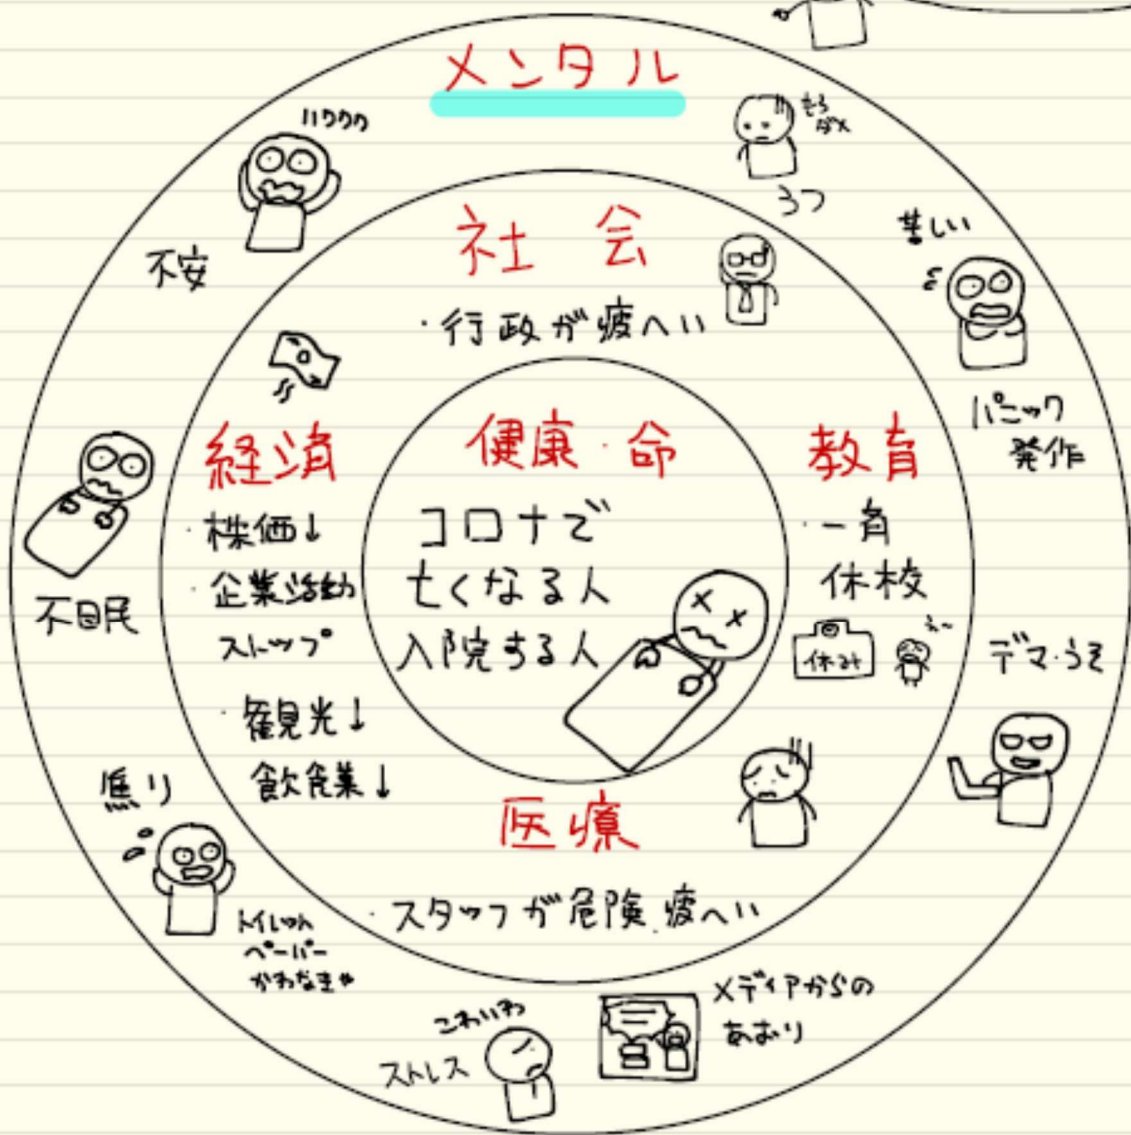 メンタル
ハワワワ
もう
ダメ
うつ
不安
苦しい
パニック
発作
社会
・行政が疲へい
経済
・株価↓
・企業活動
ストップ
・観光↓
飲食業↓
健康・命
コロナで
亡くなる人
入院する人
教育
・一斉
休校
休み
不眠
デマ・うそ
焦り
トイレット
ペーパー
かわなきゃ
医療
・スタッフが危険、疲へい
こわいわ
ストレス
メディアからの
あおり